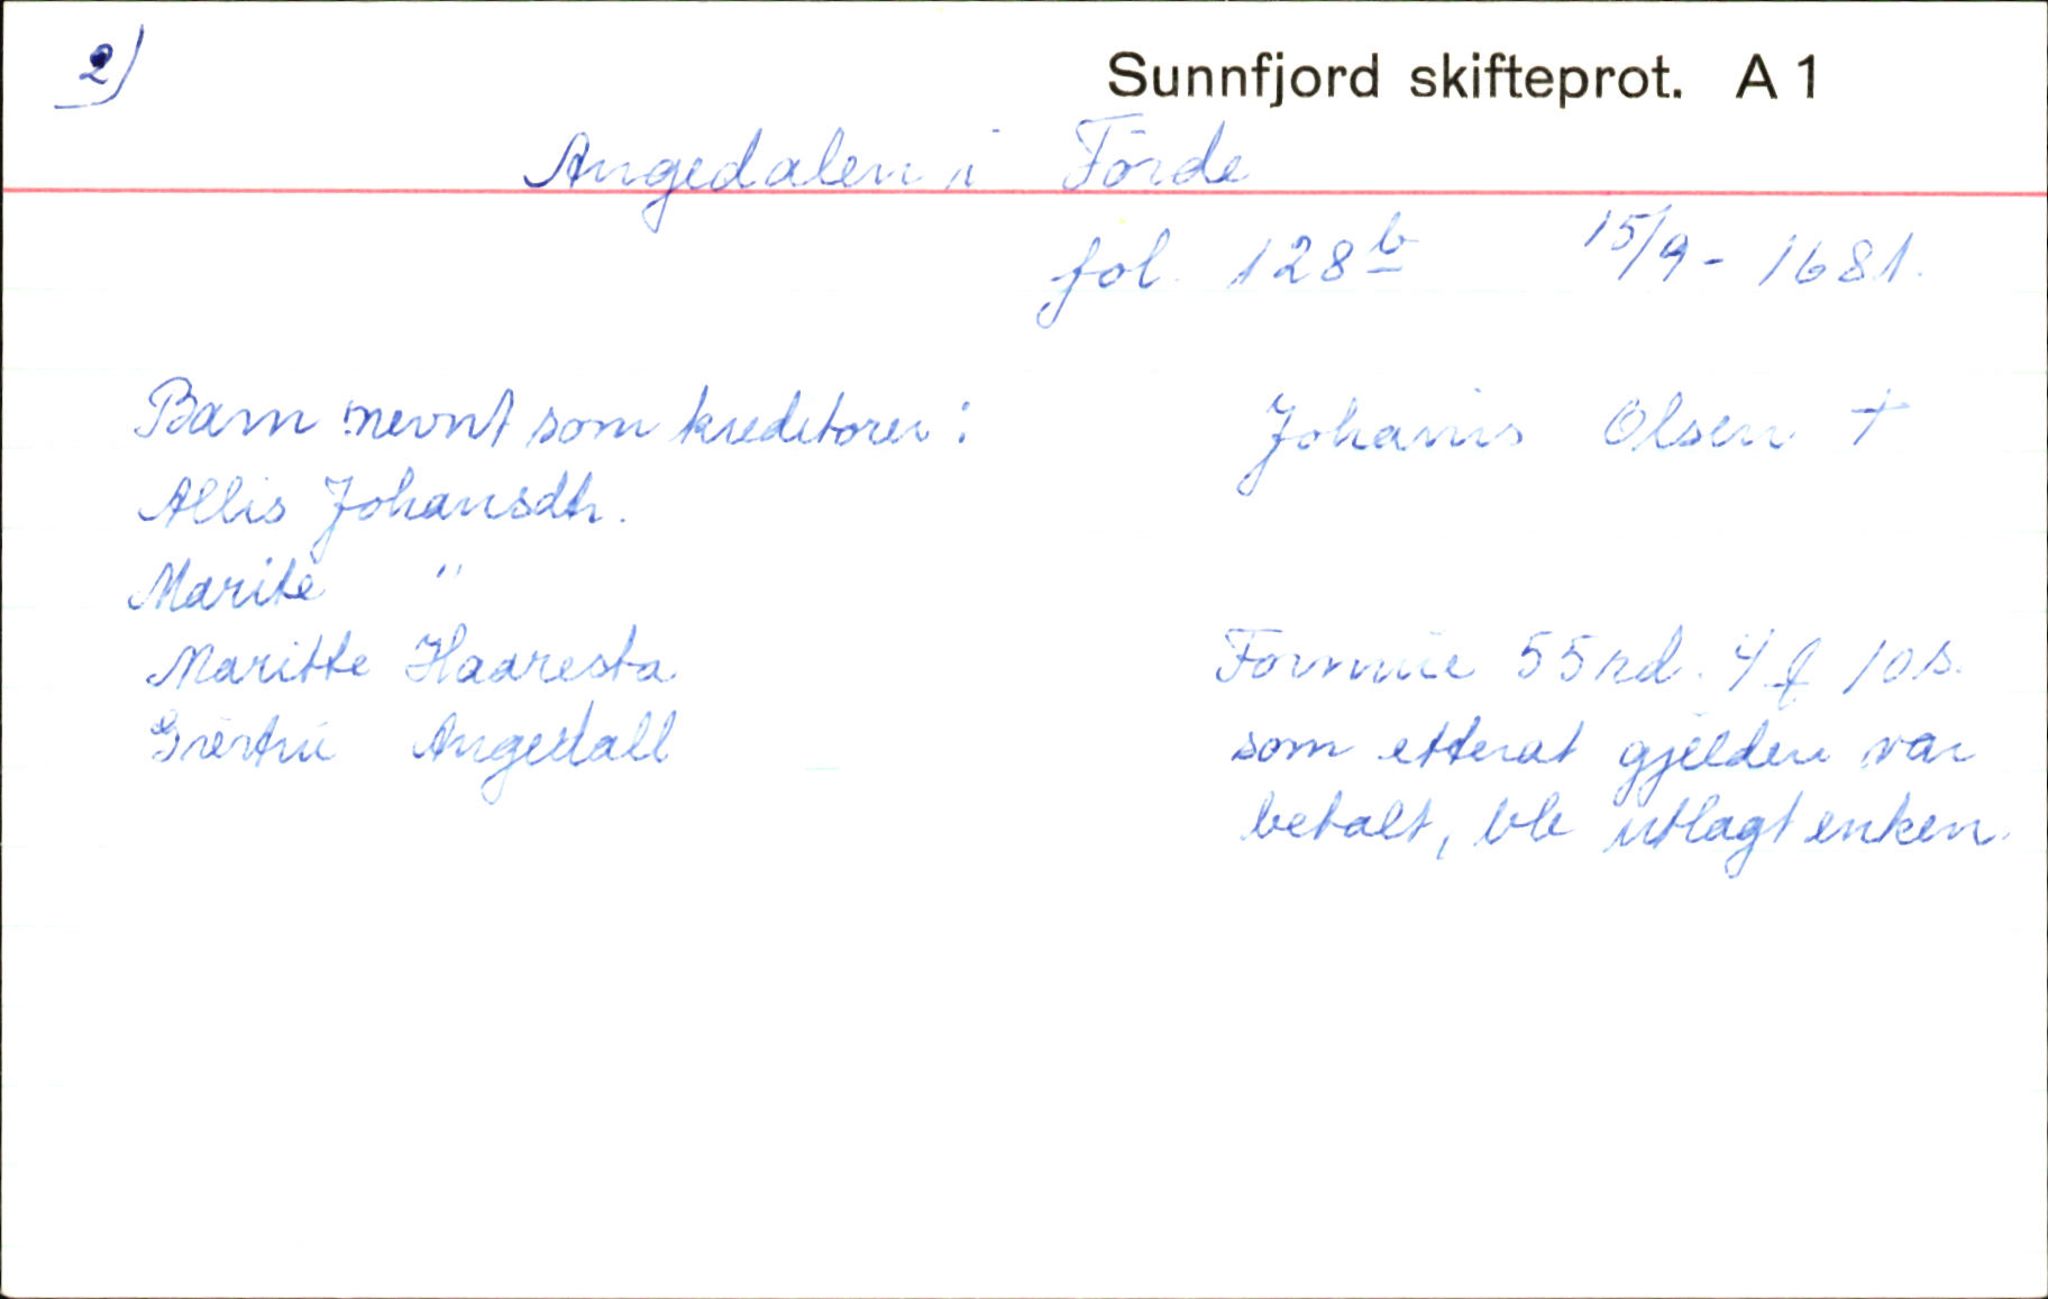 2)
Sunnfjord skifteprot. A 1
Angedalen i Förde
fol. 128b 15/9 - 1681.
Barn nevnt som kreditorer:
Allis Johansdtr.
Marite "
Maritte Haaresta
Angedall
Johanis Olsen +
Formue 55 rd. 4 10 s.
som etterat gjelden var
betalt, ble utlagt enken.